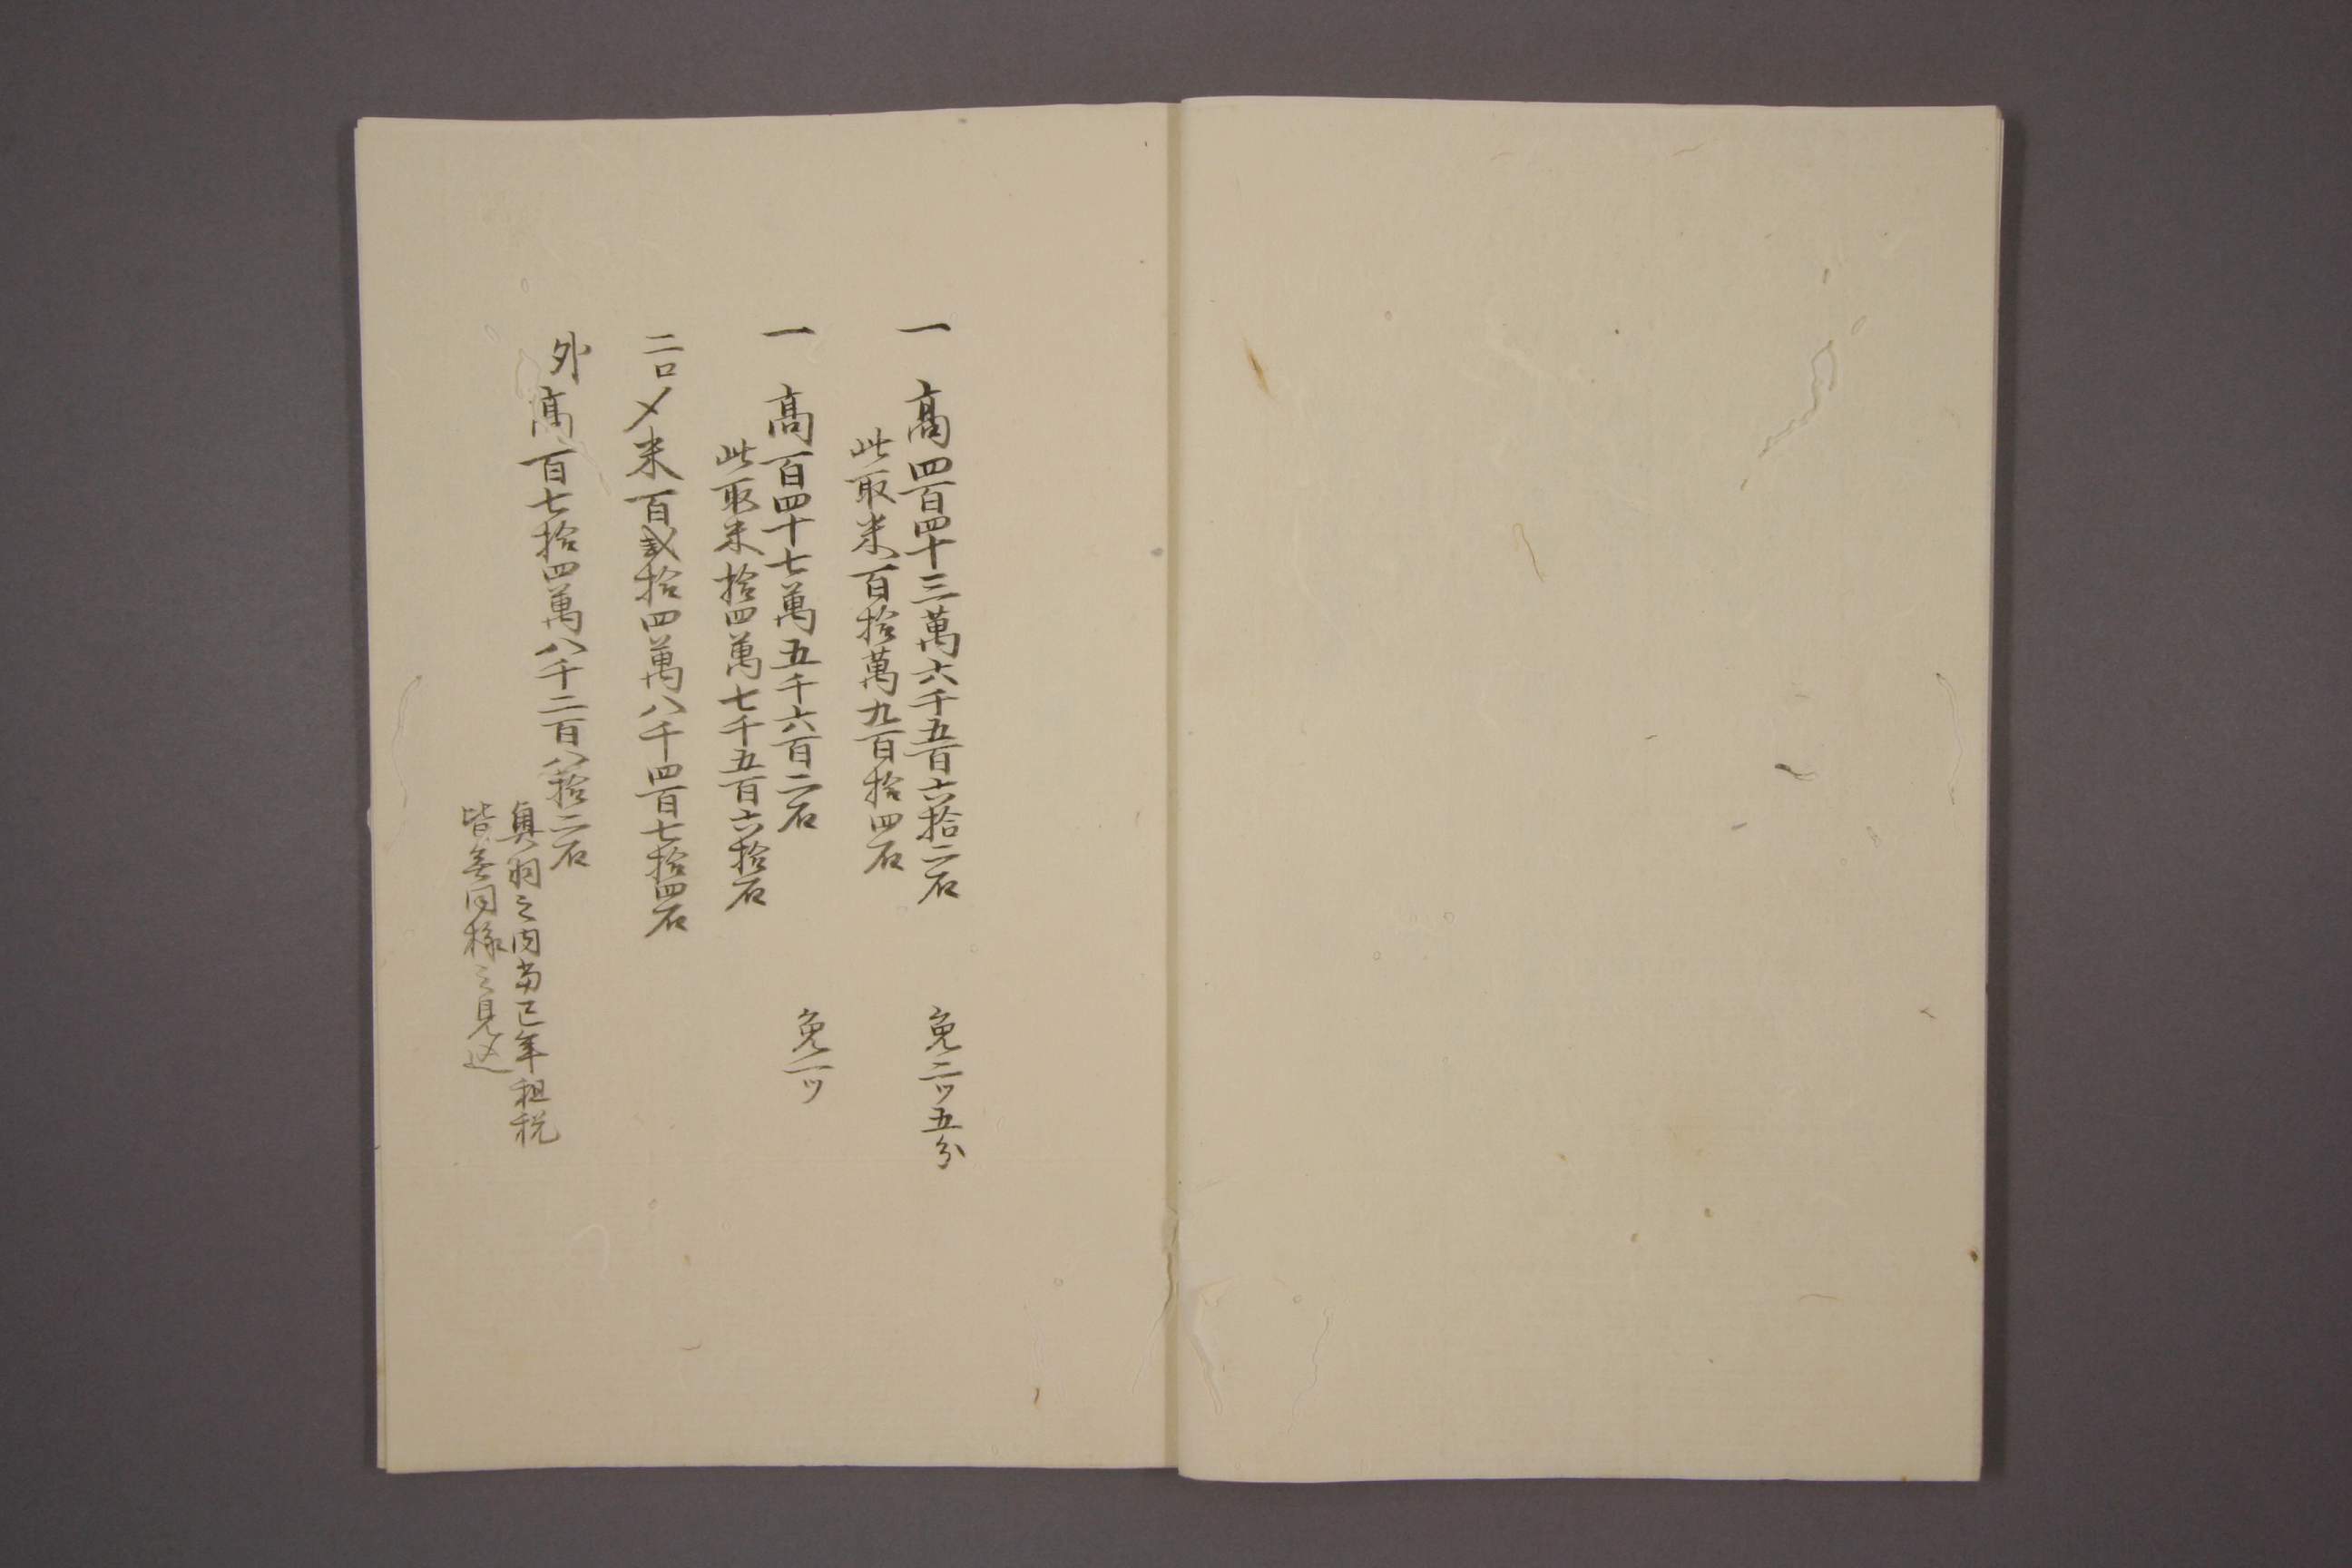 一 高四百四十三萬六千五百六拾二石 免二ツ五分
此取米百拾萬九百拾四石
一 高百四十七萬五千六百二石 免一ツ
此取米拾四萬七千五百六拾石
二口〆米百弐拾四萬八千四百七拾四石
外高百七拾四萬八千二百八拾二石
奥羽之内当巳年租税
皆無同様之見込